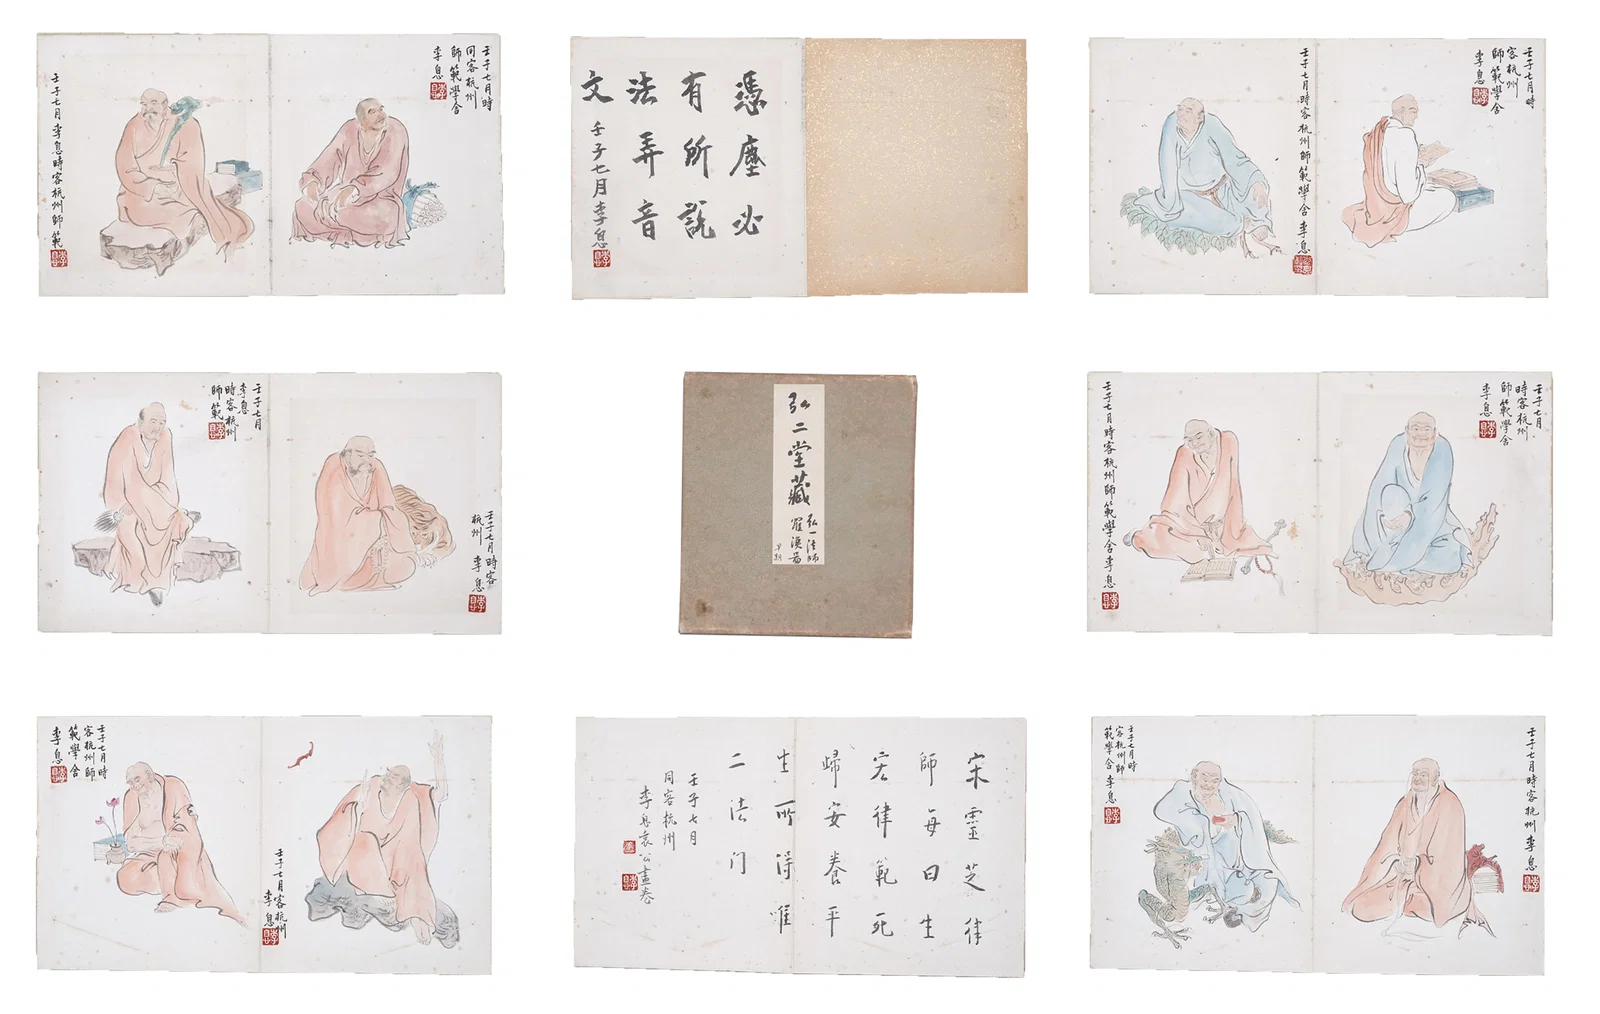 壬子七月時
同客杭州
師範學舍
李息
壬子七月李息時客杭州師範
憑塵必
有所說
法弄音
文
壬子七月李息
壬子七月時
客杭州
師範學舍
李息
壬子七月時客杭州師範學舍李息
壬子七月
李息
時客杭州
師範
壬子七月時客
杭州
李息
弘二堂藏
弘一法師
羅漢畵
早期
壬子七月
時客杭州
師範學舍
李息
壬子七月時客杭州師範學舍李息
壬子七月時
客杭州師
範學舍
李息
壬子七月客杭州
李息
宋靈芝律
師每曰生
宏律範死
歸安養平
生所得唯
二法门
壬子七月
同客杭州
李息哀公畫卷
壬子七月時客杭州李息
壬子七月時
客杭州師
範學舍李息